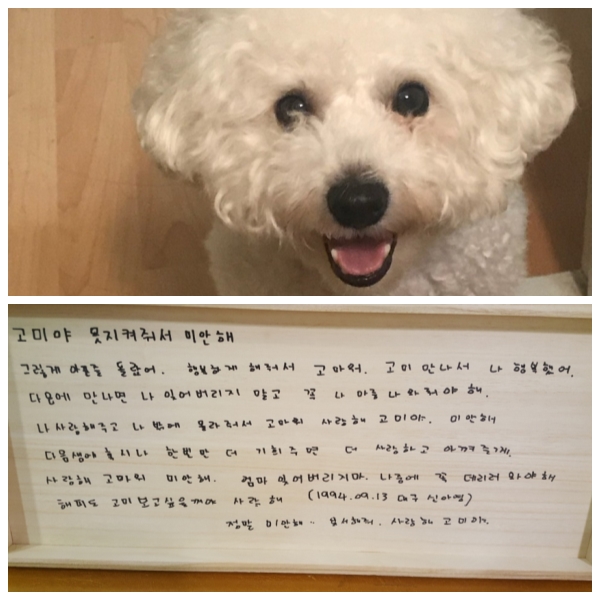 고미야 못지켜줘서 미안해
그렇게 아픈줄 몰랐어. 행복하게 해줘서 고마워. 고미 만나서 나 행복했어.
다음에 만나면 나 잊어버리지 말고 꼭 나 마중 나와줘야 해.
나 사랑해주고 나 밖에 몰라줘서 고마워 사랑해 고미야. 미안해
다음생에 혹시나 한번만 더 기회주면 더 사랑하고 아껴줄게.
사랑해 고마워 미안해. 엄마 잊어버리지마. 나중에 꼭 데리러 와야해
해피도 고미보고싶을꺼야 사랑해 (1994.09.13 대구 신아영)
정말 미안해.. 용서해줘. 사랑해 고미야.